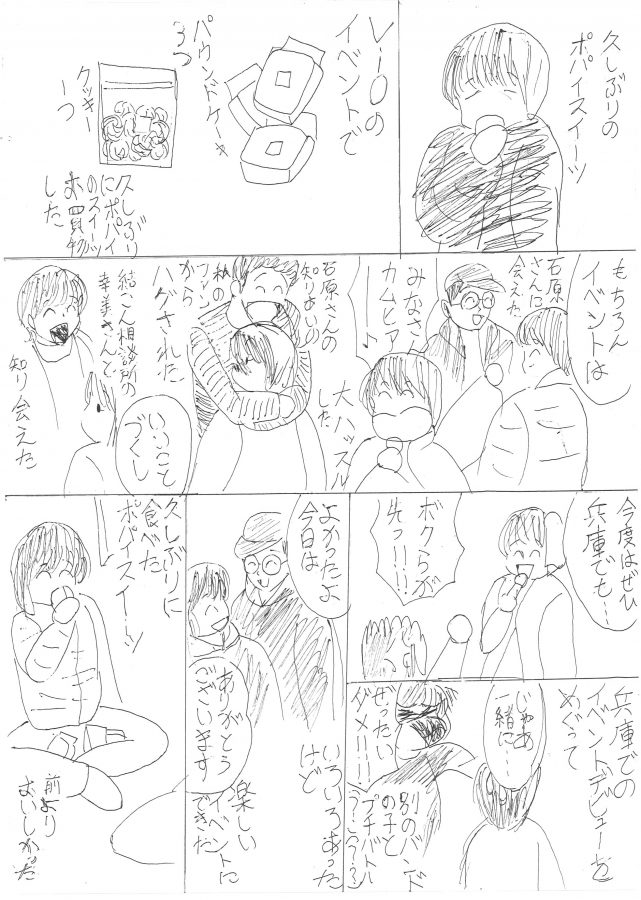 久しぶりの
ポパイスイーツ
Lioの
イベントで
パウンドケーキ
3つ
クッキー
一つ
久しぶり
にポパイ
のスイーツ
お買物
した
もちろん
イベントは
石原
さんに
会えた
みなさん
カムヒアー♪
大ハッスル
した
石原さんの
知りあいの
私の
ファン
から
ハグされた
結こん相談所の
幸美さんと
知り会えた
いいこと
づくし
今度はぜひ
兵庫でも…
ボクらが
先っ!!!
兵庫での
イベントデビューを
めぐって
じゃあ
一緒に…
ぜったい
ダメ!!!
別のバンド
の子と
プチバトル
よかったよ
今日は
ありがとう
ございます
いろいろあった
けど
楽しい
イベントに
できた
久しぶりに
食べた
ポパイスイーツ
前より
おいしかった